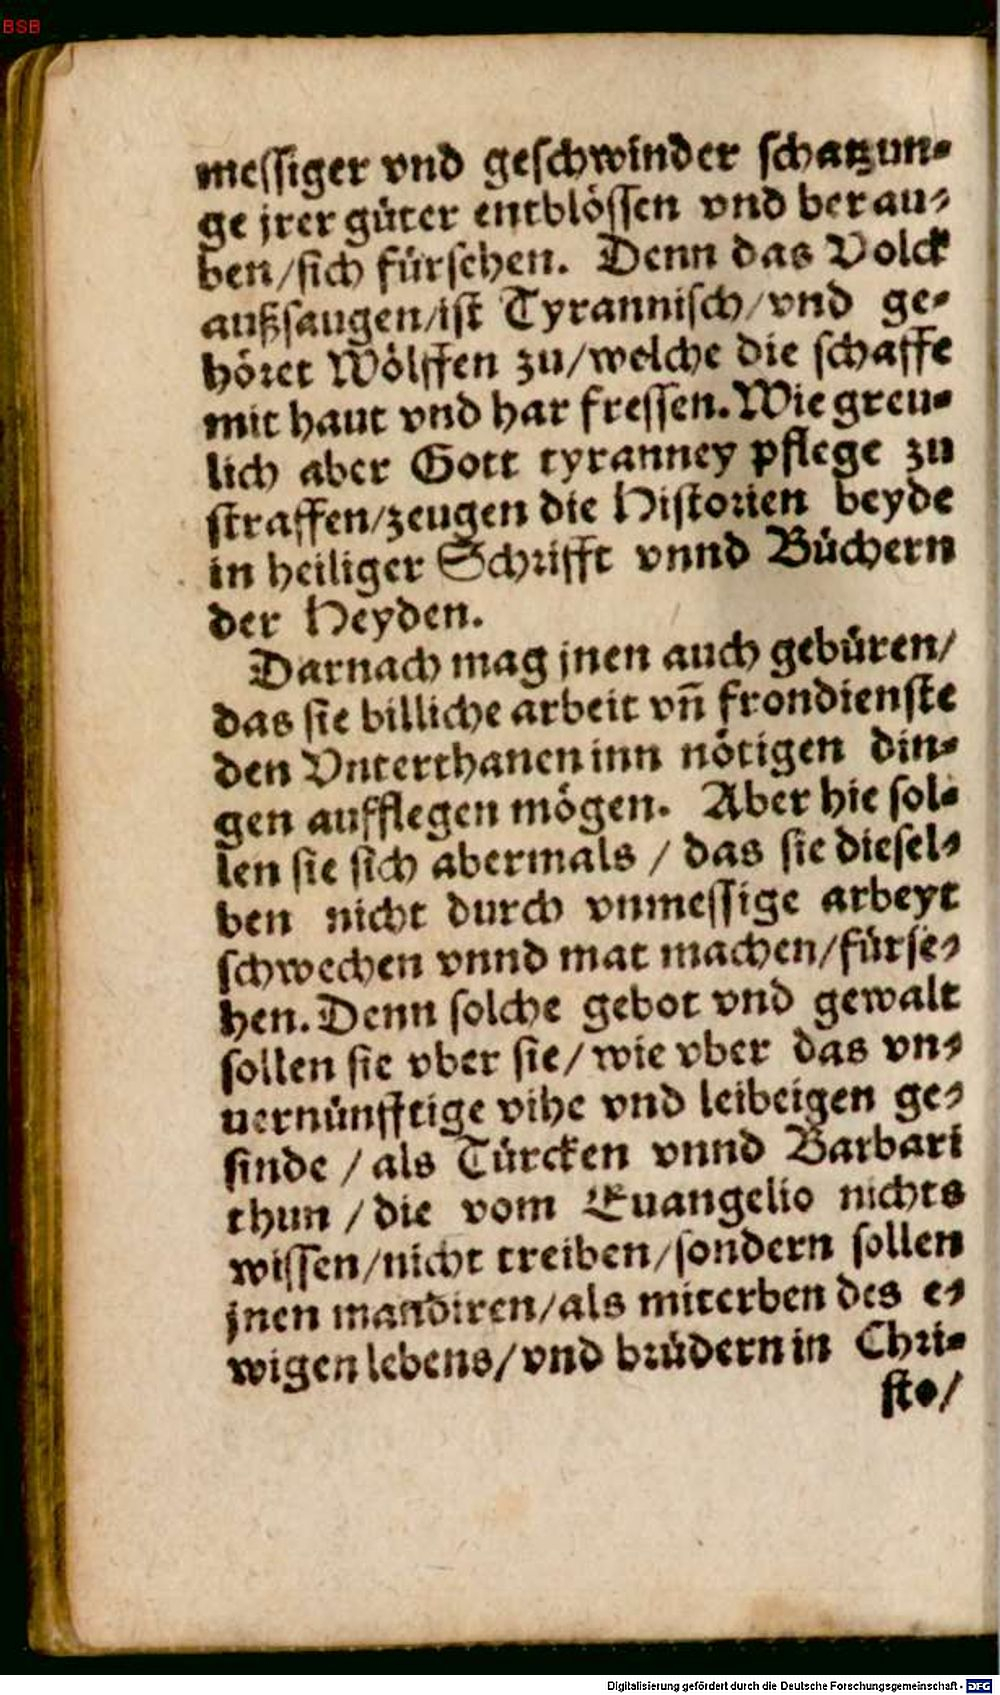 BSB
meſſiger vnd geſchwinder ſchatzun⸗
ge jrer güter entblöſſen vnd berau⸗
ben/ſich fürſehen. Denn das Volck
außſaugen/iſt Tyranniſch/vnd ge⸗
höret Wölffen zu/welche die ſchaffe
mit haut vnd har freſſen. Wie greu⸗
lich aber Gott tyranney pflege zu
ſtraffen/zeugen die Hiſtorien beyde
in heiliger Schrifft vnnd Büchern
der Heyden.
Darnach mag jnen auch gebüren/
das ſie billiche arbeit vñ frondienſte
den Vnterthanen inn nötigen din⸗
gen aufflegen mögen. Aber hie ſol⸗
len ſie ſich abermals / das ſie dieſel⸗
ben nicht durch vnmeſſige arbeyt
ſchwechen vnnd mat machen/fürſe⸗
hen. Denn ſolche gebot vnd gewalt
ſollen ſie vber ſie/ wie vber das vn⸗
uernünfftige vihe vnd leibeigen ge⸗
ſinde / als Türcken vnnd Barbari
thun / die vom Euangelio nichts
wiſſen/nicht treiben/ſondern ſollen
jnen mandiren/als miterben des e⸗
wigen lebens/vnd brüdern in Chri⸗
ſto/
Digitalisierung gefördert durch die Deutsche Forschungsgemeinschaft - DFG